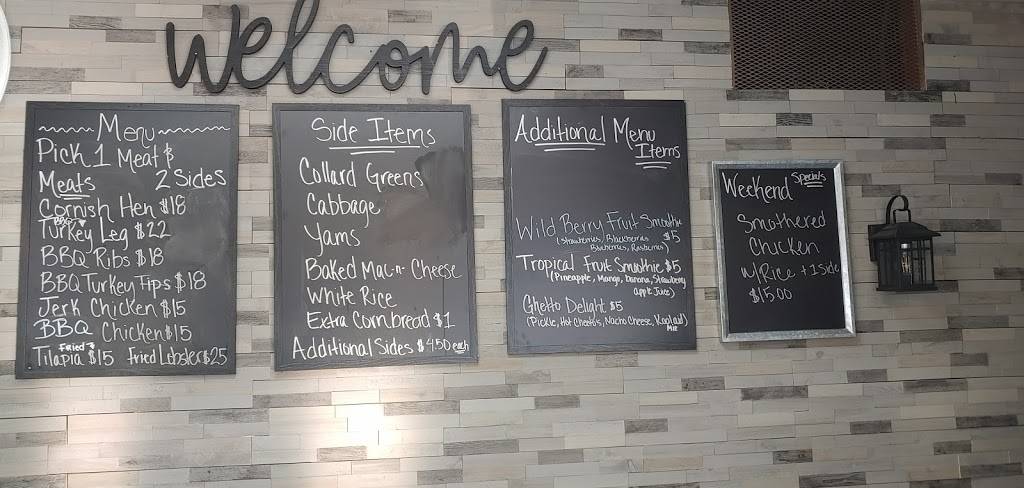 welcome
Menu
Pick 1 Meat &
Meats 2 Sides
Cornish Hen $18
BBQ
Turkey Leg $22
BBQ Ribs $18
BBQ Turkey Tips $18
Jerk Chicken $15
BBQ Chicken $15
Fried
Tilapia $15 Fried Lobster $25
Side Items
Collard Greens
Cabbage
Yams
Baked Mac-n-Cheese
White Rice
Extra Cornbread $1
Additional Sides $4.50 each
Additional Menu
Items
Wild Berry Fruit Smoothie
(Strawberries, Blackberries $5
Blueberries, Rasberries)
Tropical Fruit Smoothie $5
(Pineapple, Mango, banana, Strawberry
apple Juice)
Ghetto Delight $5
(Pickle, Hot Cheetos, Nacho Cheese, Koolaid)
Mix
Weekend Specials
Smothered
Chicken
w/Rice + 1 Side
$15.00